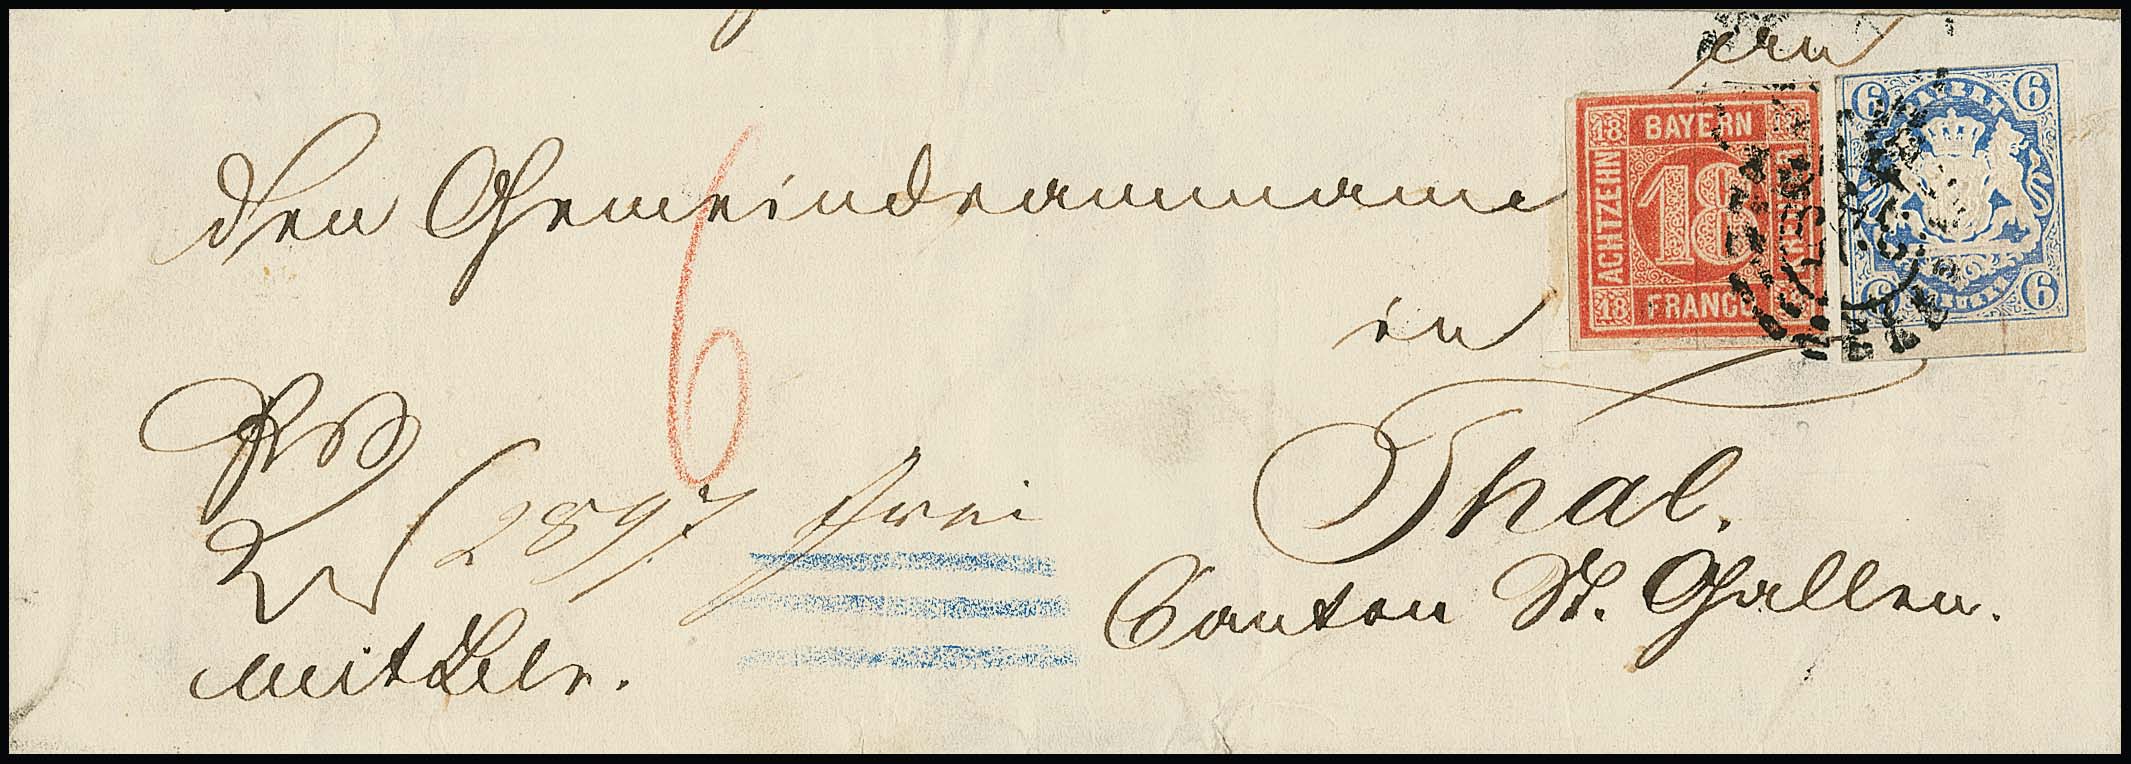 An
den Gemeindeammann
in
Thal.
Canton St. Gallen.
6
(2897 frei
mit Beil.
18 BAYERN 18
ACHTZEHN
18
KREUZER
18 FRANCO
6 BAYERN 6
6 KREUZER 6